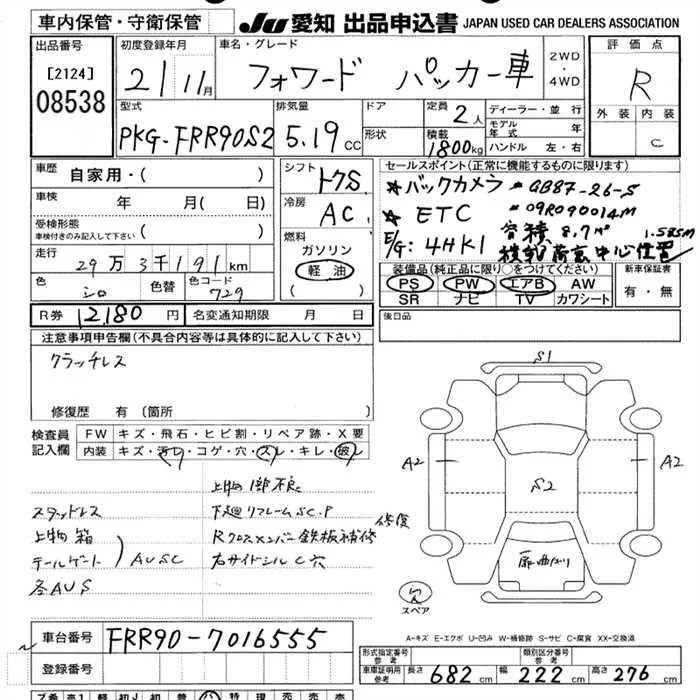 車内保管・守衛保管
JU 愛知 出品申込書 JAPAN USED CAR DEALERS ASSOCIATION
出品番号
[2124]
08538
初度登録年月
21 11月
車名・グレード
フォワード パッカー車
2WD
・
4WD
評価点
R
外装 内装
C
型式
PKG-FRR90S2
排気量
5.19 CC
ドア
形状
定員 2人
積載 1800kg
ディーラー・並行
モデル年式 年
ハンドル 左・右
車歴 自家用・( )
車検 年 月( 日)
受検形態
車検付きのみ記入して下さい ( )
走行
29万3千191km
色 シロ 色替 色コード 729
シフト トクS
冷房 AC
燃料
ガソリン
軽油
( )
セールスポイント(正常に機能するものに限ります)
★バックカメラ ★GB87-26-5
★ETC ★09R090014M
E/G: 4HK1 容積 8.7㎥ 1.585M
荷台中心位置
装備品(純正品に限り○をつけてください)
PS PW エアB AW
SR ナビ TV カワシート
新車保証書
有・無
R券 12,180円 名変通知期限 月 日
後日品
注意事項申告欄(不具合内容等は具体的に記入して下さい)
クラッチレス
修復歴 有(箇所 )
検査員
記入欄
FW キズ・飛石・ヒビ割・リペア跡・X要
内装 キズ・汚レ・コゲ・穴・スレ・キレ・破レ
上物1部不良
スタッドレス
下廻リフレームSC.P
上物 箱
Rクロスメンバー鉄板補修
テールゲート ) AUSC
右サイドシルC穴
各AUS
修復
S1
A2
A2
S2
扉曲がり
スペア
A-キズ E-エクボ U-凹み W-補修跡 S-サビ C-腐食 XX-交換済
車台番号 FRR90-7016555
登録番号
形式指定番号
参考
類別区分番号
参考
車庫証明用
参考
長さ 682cm 幅 222cm 高さ 276cm